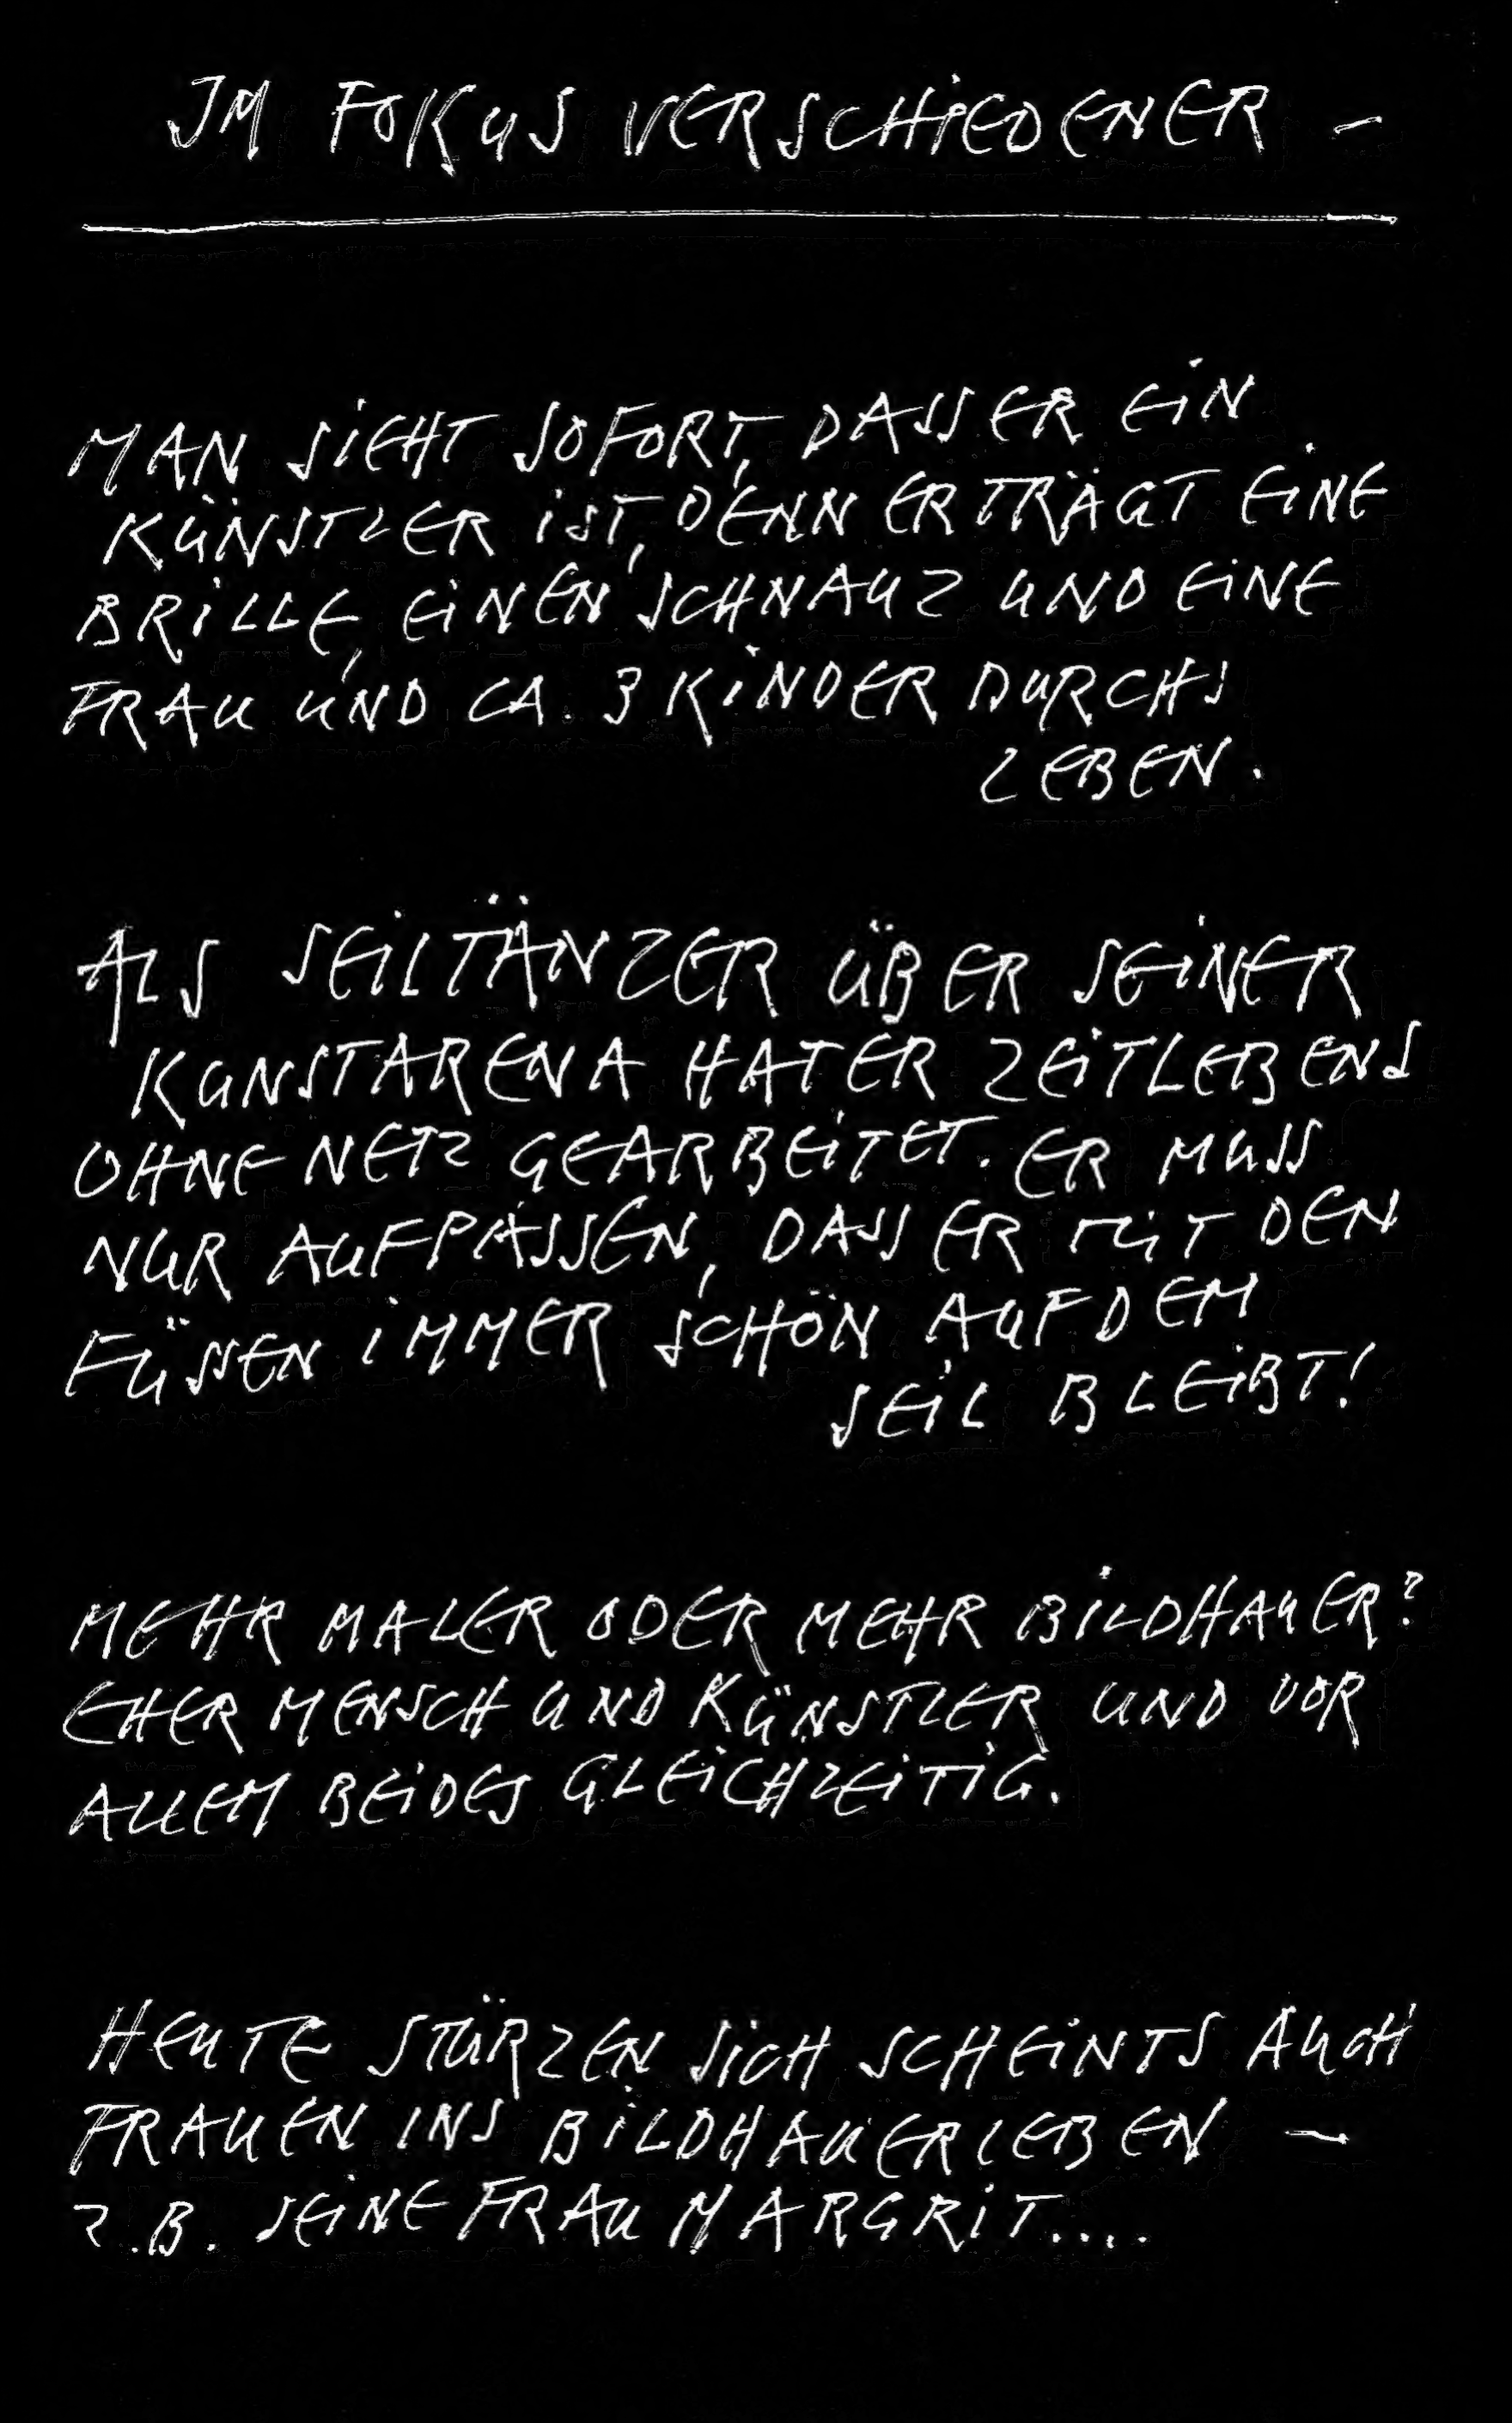 IM FOKUS VERSCHIEDENER –
MAN SIEHT SOFORT, DASS ER EIN
KÜNSTLER IST, DENN ER TRÄGT EINE
BRILLE, EINEN SCHNAUZ UND EINE
FRAU UND CA. 3 KINDER DURCHS
LEBEN.
ALS SEILTÄNZER ÜBER SEINER
KUNSTARENA HAT ER ZEITLEBENS
OHNE NETZ GEARBEITET. ER MUSS
NUR AUFPASSEN, DASS ER MIT DEN
FÜSSEN IMMER SCHÖN AUF DEM
SEIL BLEIBT!
MEHR MALER ODER MEHR BILDHAUER?
EHER MENSCH UND KÜNSTLER UND VOR
ALLEM BEIDES GLEICHZEITIG.
HEUTE STÜRZEN SICH SCHEINTS AUCH
FRAUEN INS BILDHAUERLEBEN –
Z.B. SEINE FRAU MARGRIT....